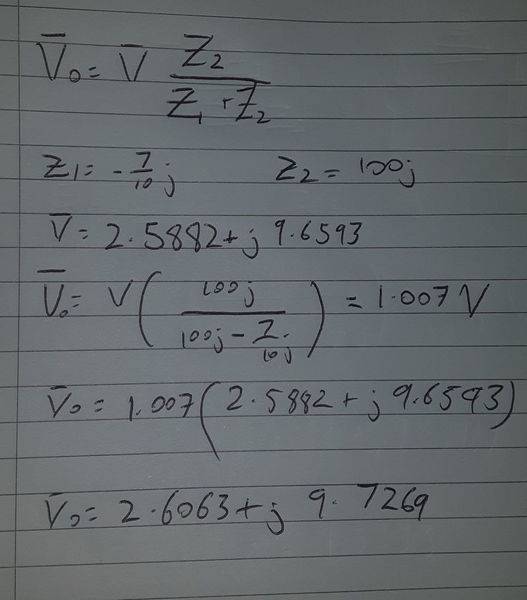 V̅₀ = V̅ Z₂ / (Z₁ + Z₂)
Z₁ = -7/10 j    Z₂ = 100j
V̅ = 2.5882 + j 9.6593
V̅₀ = V (100j / (100j - 7/10 j)) = 1.007 V
V̅₀ = 1.007 (2.5882 + j 9.6593)
V̅₀ = 2.6063 + j 9.7269